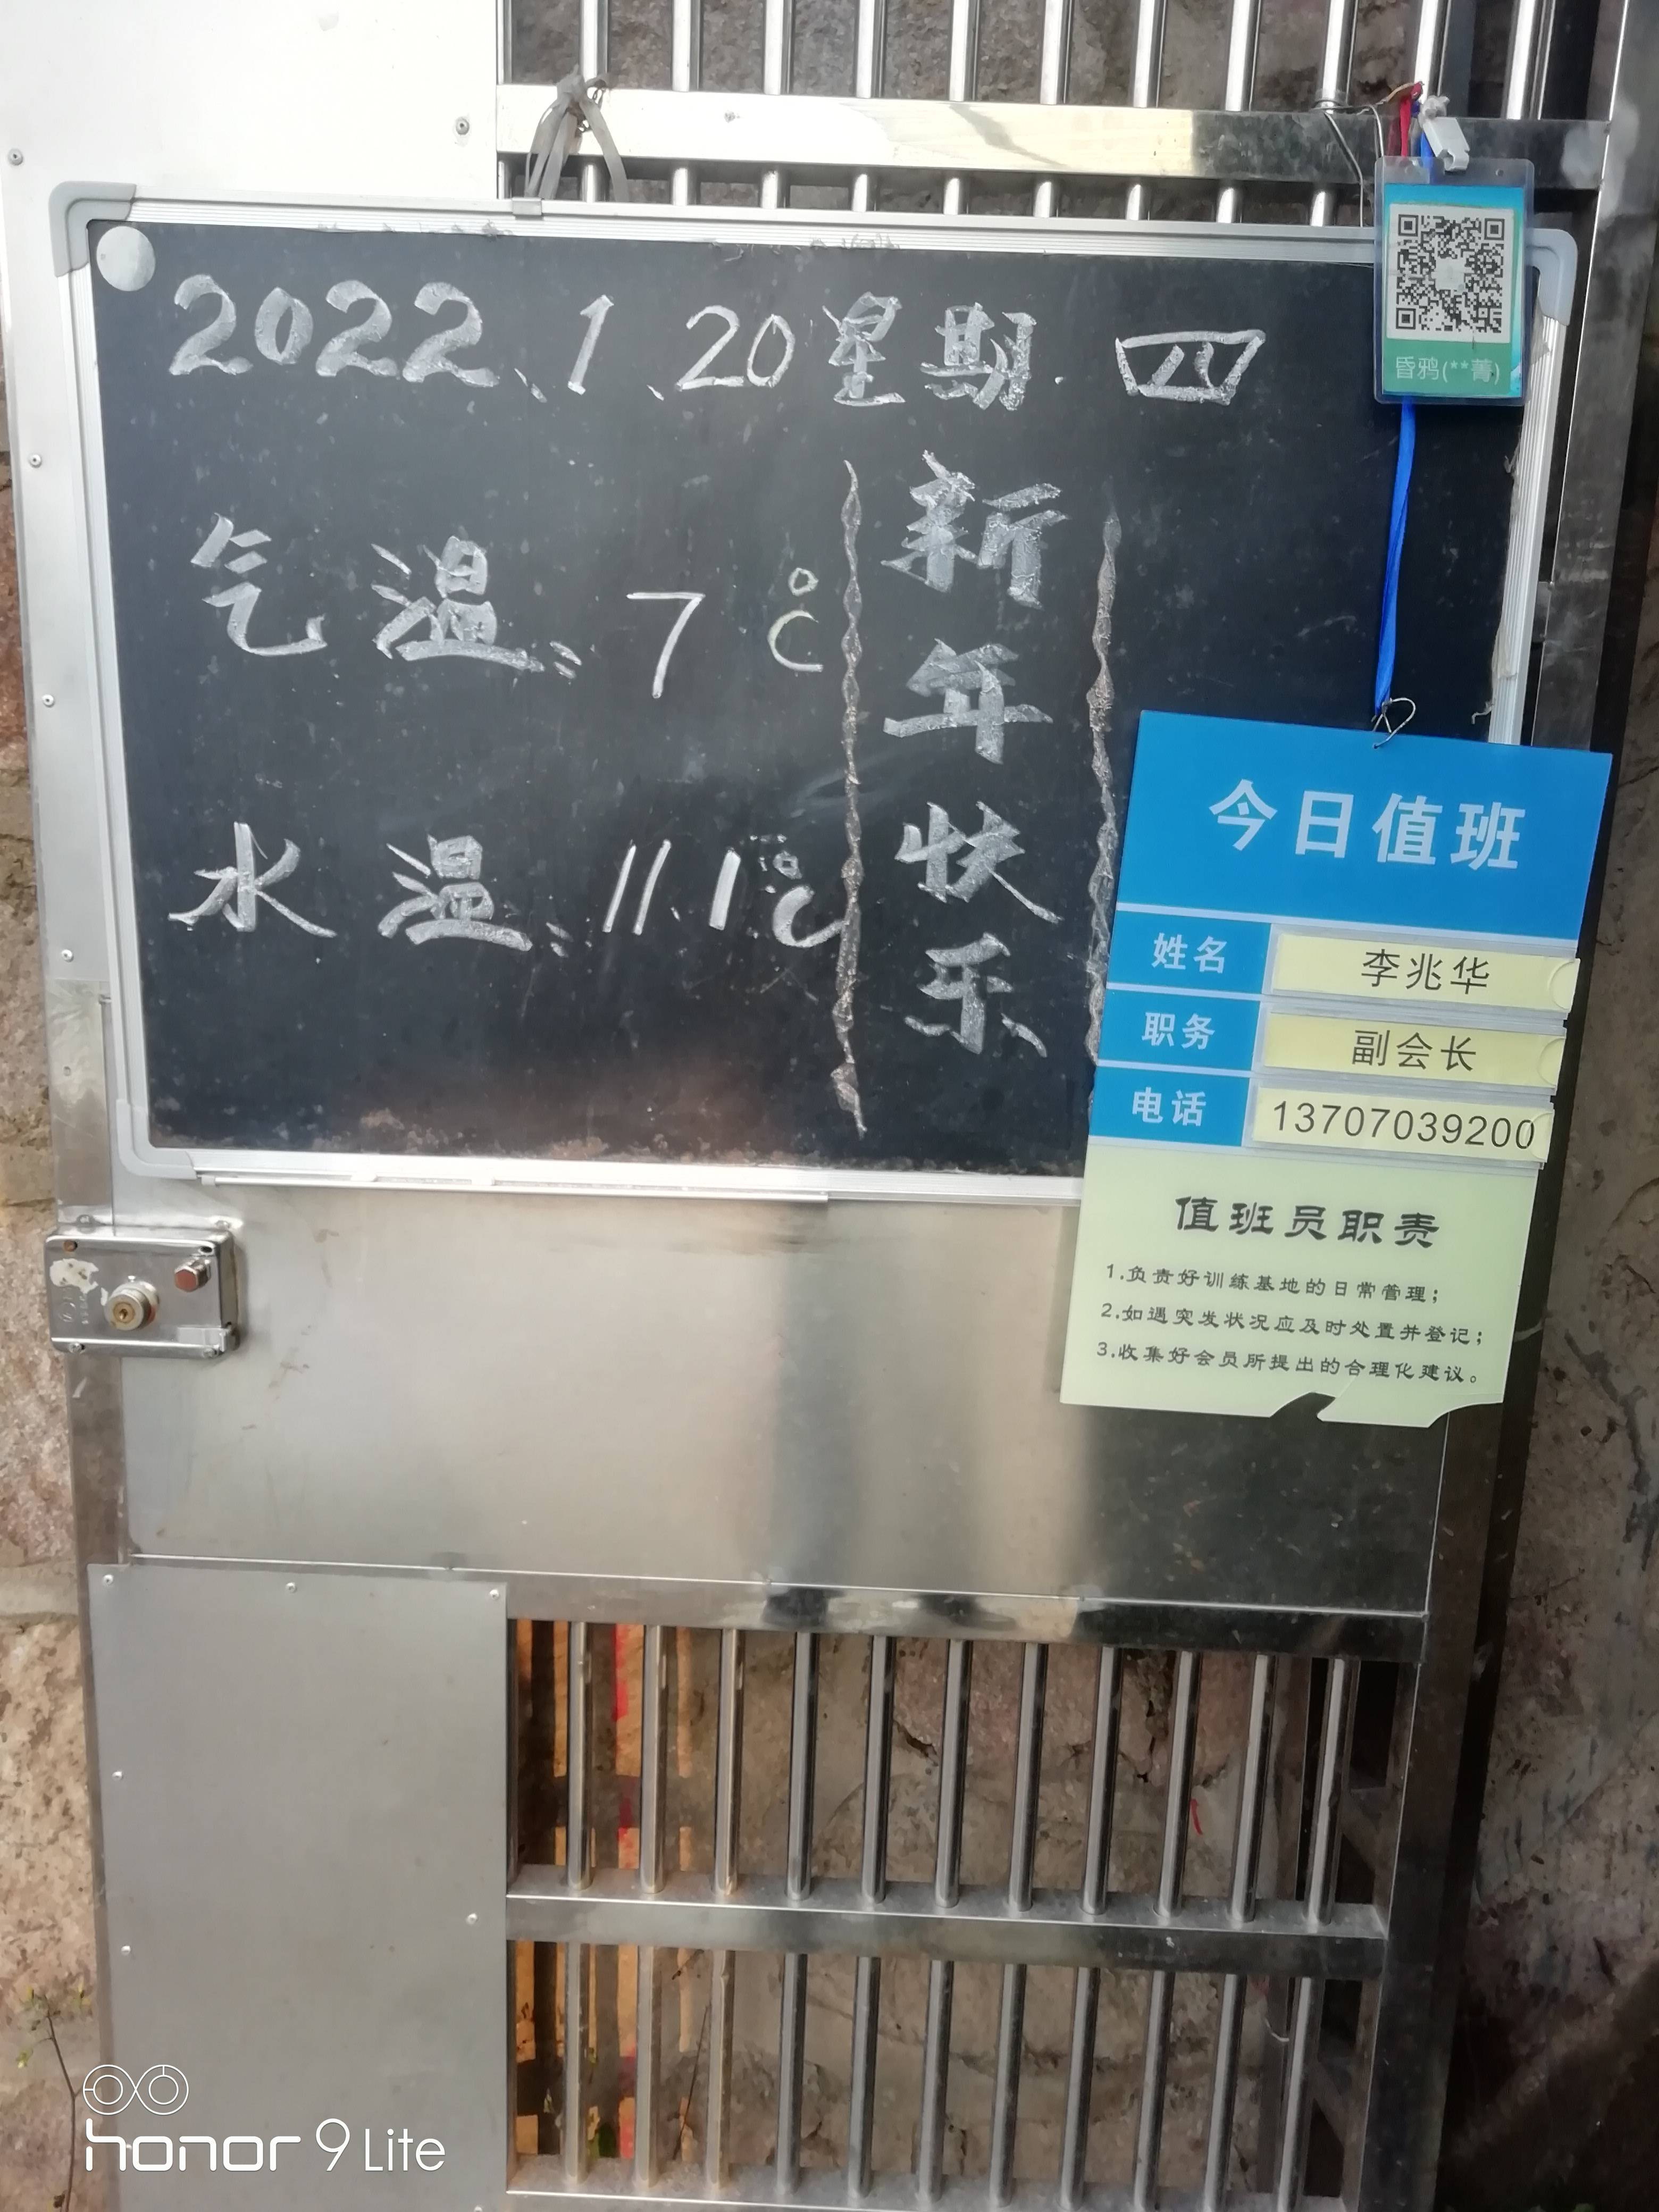 2022、1、20星期.四
气温:7℃
水温:11.1℃
新年快乐
昏鸦(**菁)
今日值班
姓名 李兆华
职务 副会长
电话 13707039200
值班员职责
1.负责好训练基地的日常管理；
2.如遇突发状况应及时处置并登记；
3.收集好会员所提出的合理化建议。
honor 9 Lite